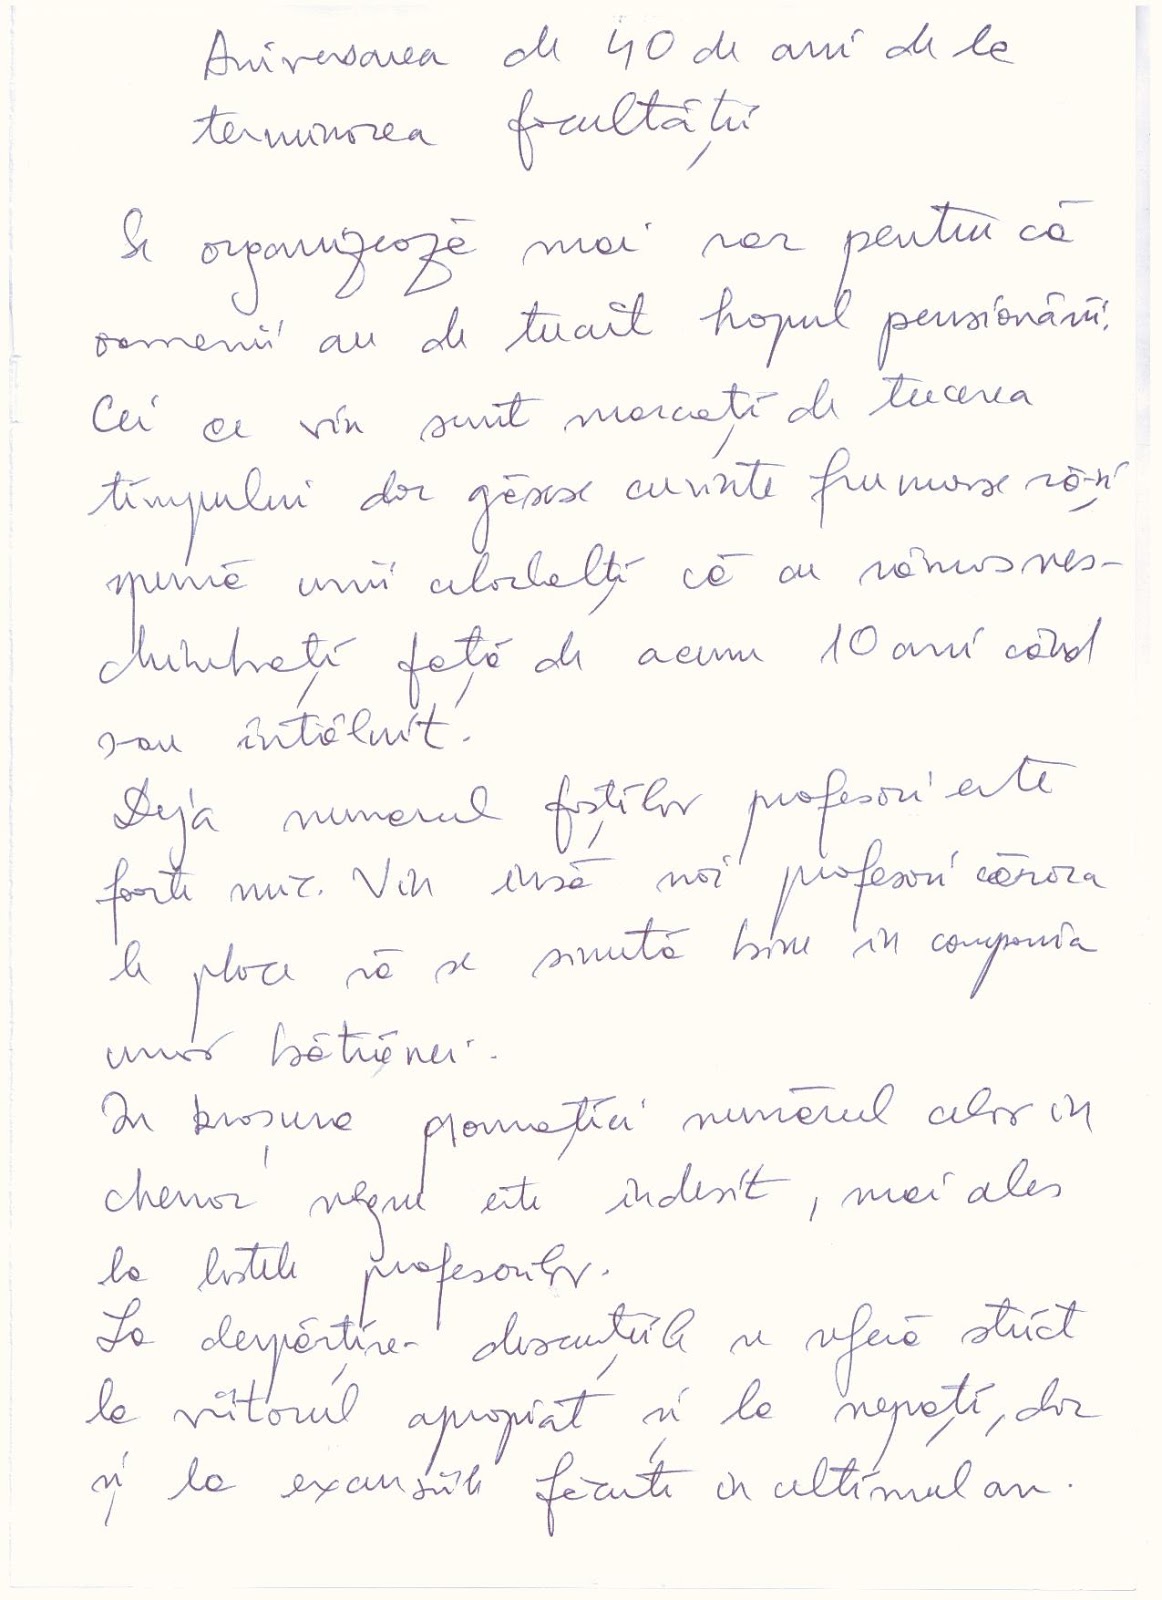 Aniversarea de 40 de ani de la
terminarea facultății
Se organizează mai rar pentru că
oamenii au de trecut hopul pensionării.
Cei ce vin sunt marcați de trecerea
timpului dar găsesc cuvinte frumoase să-și
spună unii celorlalți că au rămas nes-
chimbați față de acum 10 ani când
s-au întâlnit.
Deja numărul foștilor profesori este
foarte mic. Vin însă noi profesori cărora
le place să se simtă bine in compania
unor bătrânei.
In broșura promoției numărul celor in
chenar negru este indesit, mai ales
la listele profesorilor.
La despărțire discuțiile se referă strict
la viitorul apropiat și la nepoți, dar
și la excursiile făcute in ultimul an.